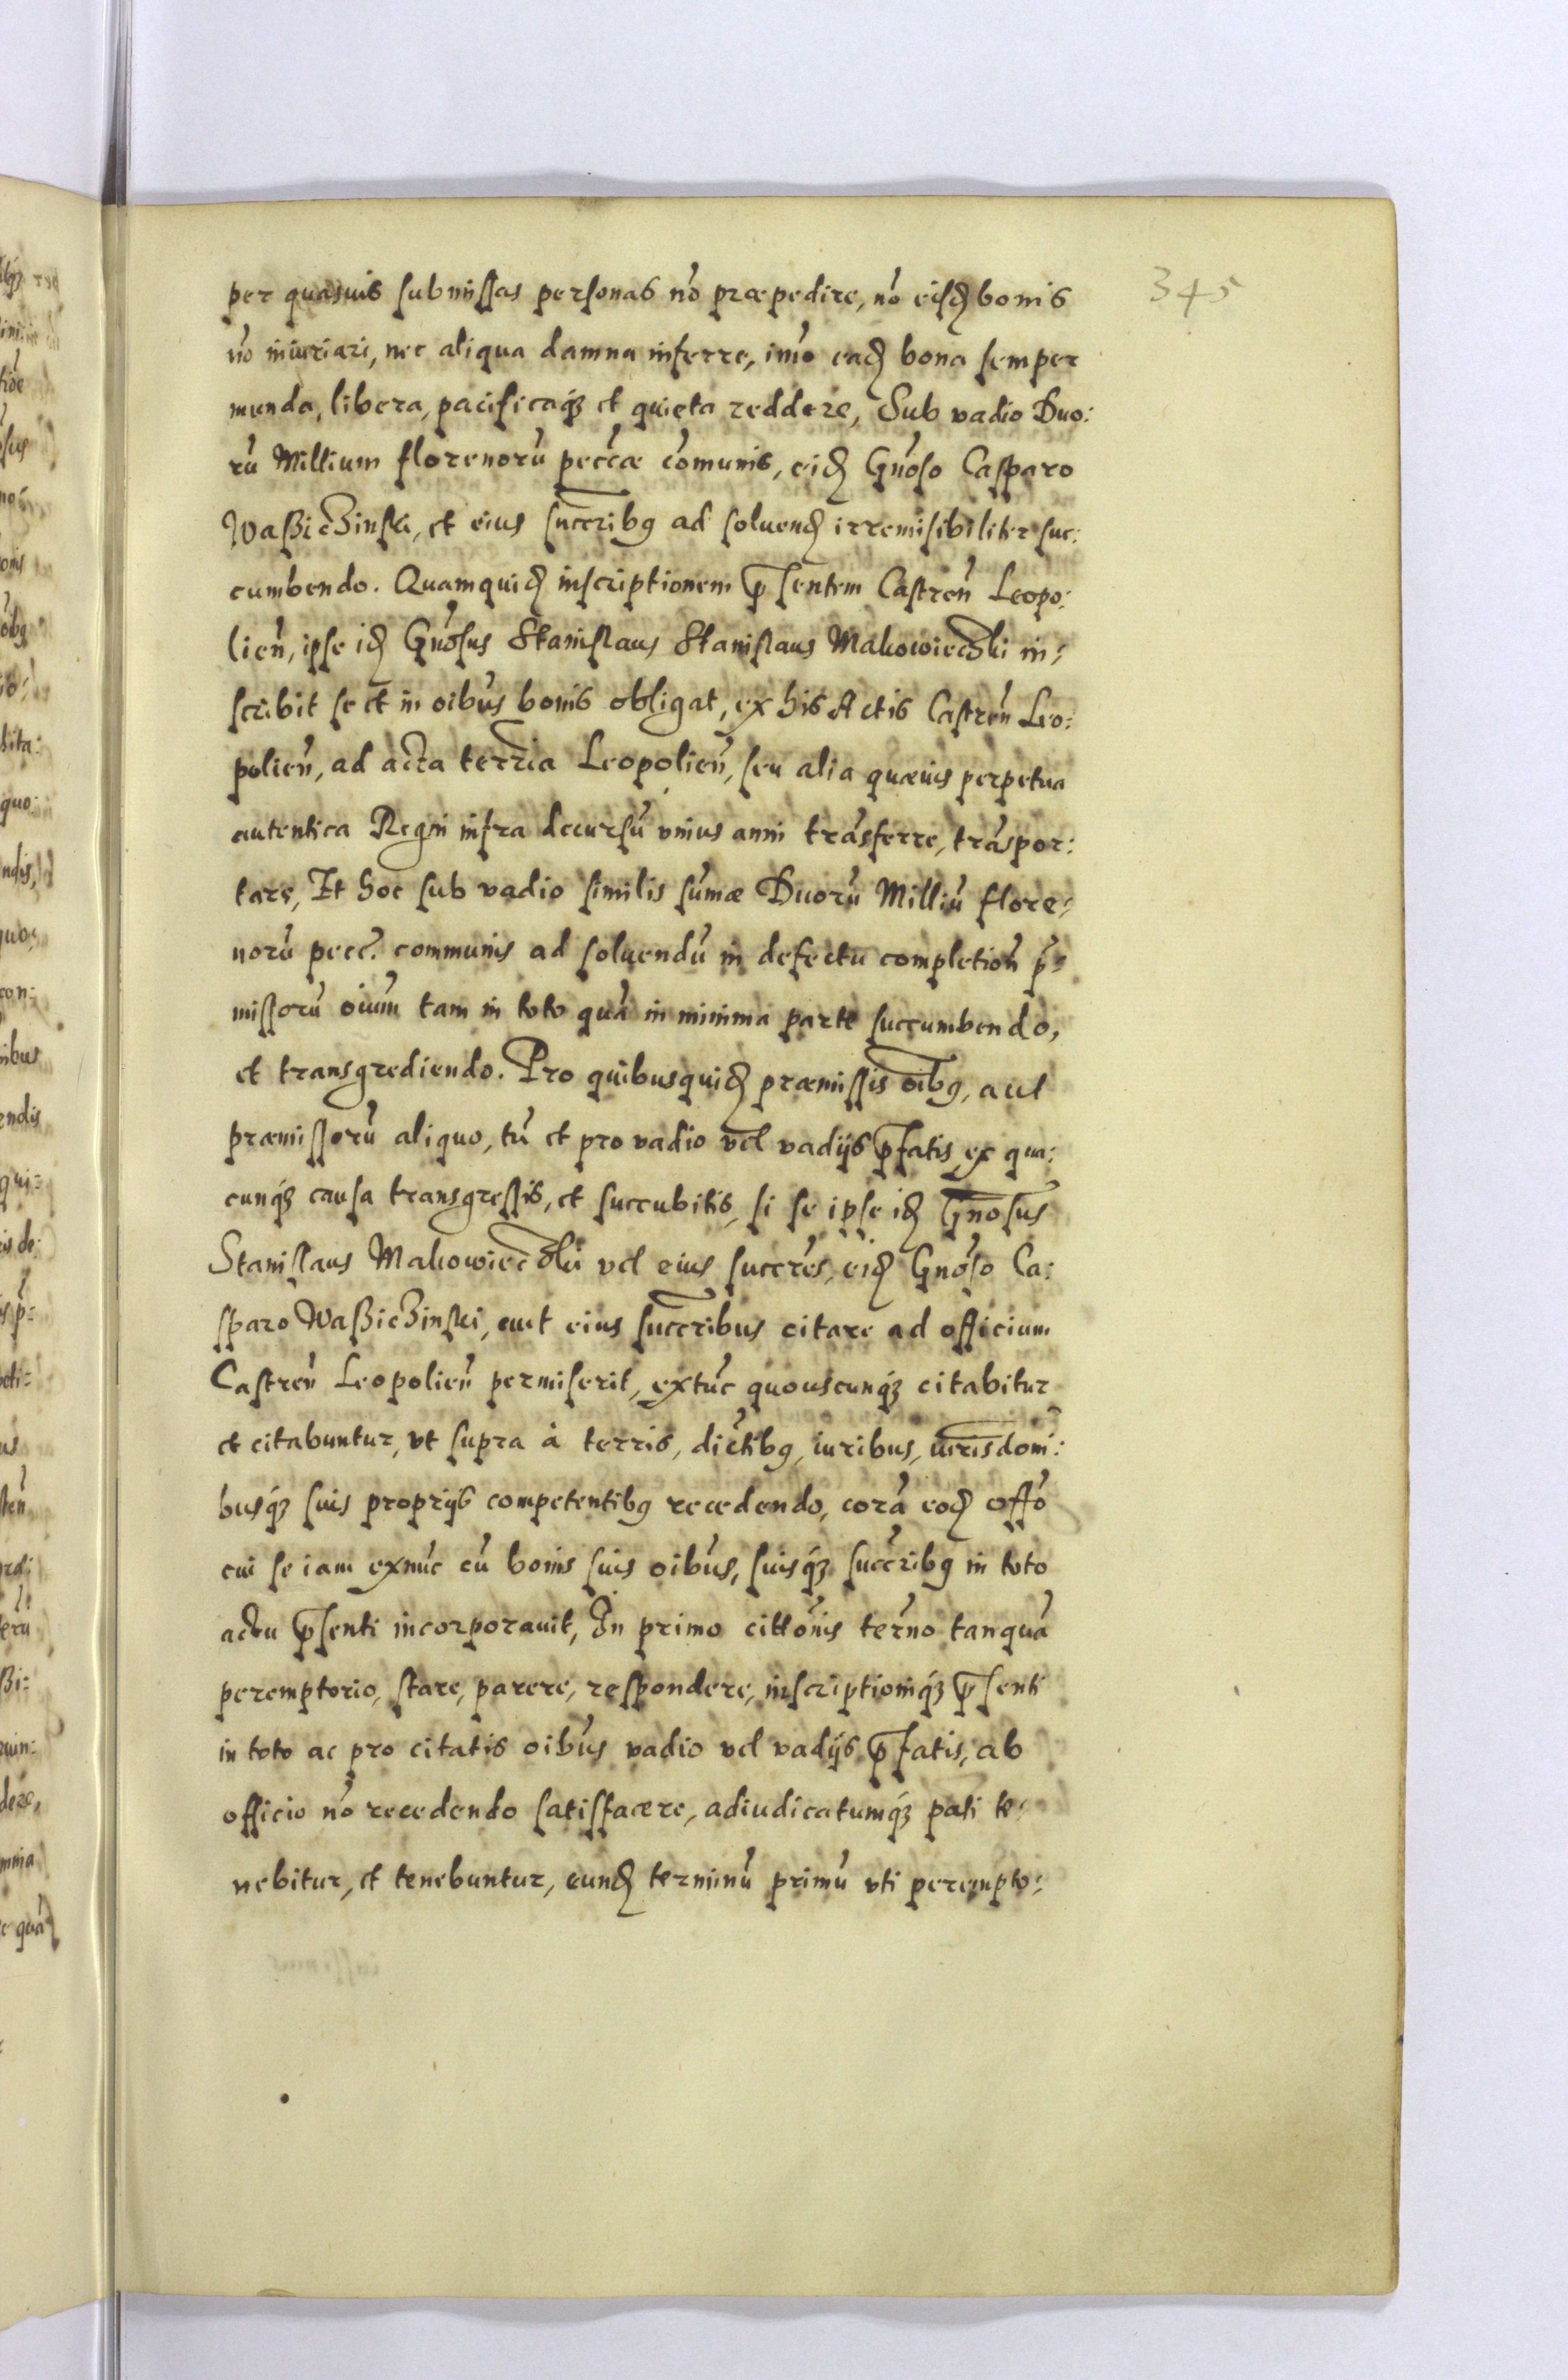 345
per quasuis submissas personas nō præpedire, nō eisd bonis
nō iniuriari, nec aliqua damna inferre, imō ead bona semper
munda, libera, pacificaq₃ et quieta reddere, Sub vadio Duo:
rū Millium florenorū peccæ cōmunis, eid Gnōso Casparo
Waßiczinski, et eius succribꝰ ad soluend irremisibiliter suc:
cumbendo. Quamquid inscriptionem pn̄sentem Castren̄ Leopo:
lien̄, ipse id Gnōsus Stanislaus Stanislaus Makowieczki in:
scribit se et in oībus bonis obligat, ex his Actis Castren̄ Leo:
polien̄, ad acta terr̄ia Leopolien̄, seu alia quæuis perpetua
autentica Regni infra decursū vnius anni trāsferre, trāspor:
tare, Et hoc sub vadio similis sum̄æ Duorū Milliū flore:
norū pecc̄. communis ad soluendū in defectu completion̄ p̄:
missorū oīum tam in toto quā in minima parte succumbendo,
et transgrediendo. Pro quibusquid præmissis oībꝰ, aut
præmissorū aliquo, tū et pro vadio vel vadijs p̄fatis ex qua:
cunq₃ causa transgressis, et succubitis, si se ipse id Gnōsus
Stanislaus Makowieczki vel eius succres, eid Gnōso Ca:
sparo Waßiczinski, aut eius succribus citare ad officium
Castren̄ Leopolien̄ permiserit, extūc quouscunq₃ citabitur
et citabuntur, vt supra à terris, dictibꝰ, iuribus, iurisdom̄:
busq₃ suis proprijs competentibꝰ recedendo, corā eod offō
cui se iam exnūc cū bonis suis oībus, suisq₃ succribꝰ in toto
actu p̄senti incorporauit, In primo citt̄onis ter̄no tanquā
peremptorio, stare, parere, respondere, inscriptioniq₃ p̄senti
in toto ac pro citatis oībus vadio vel vadijs p̄fatis, ab
officio nō recedendo satisfacere, adiudicatumq₃ pati te:
nebitur, et tenebuntur, eund terminū primū vti perempto: